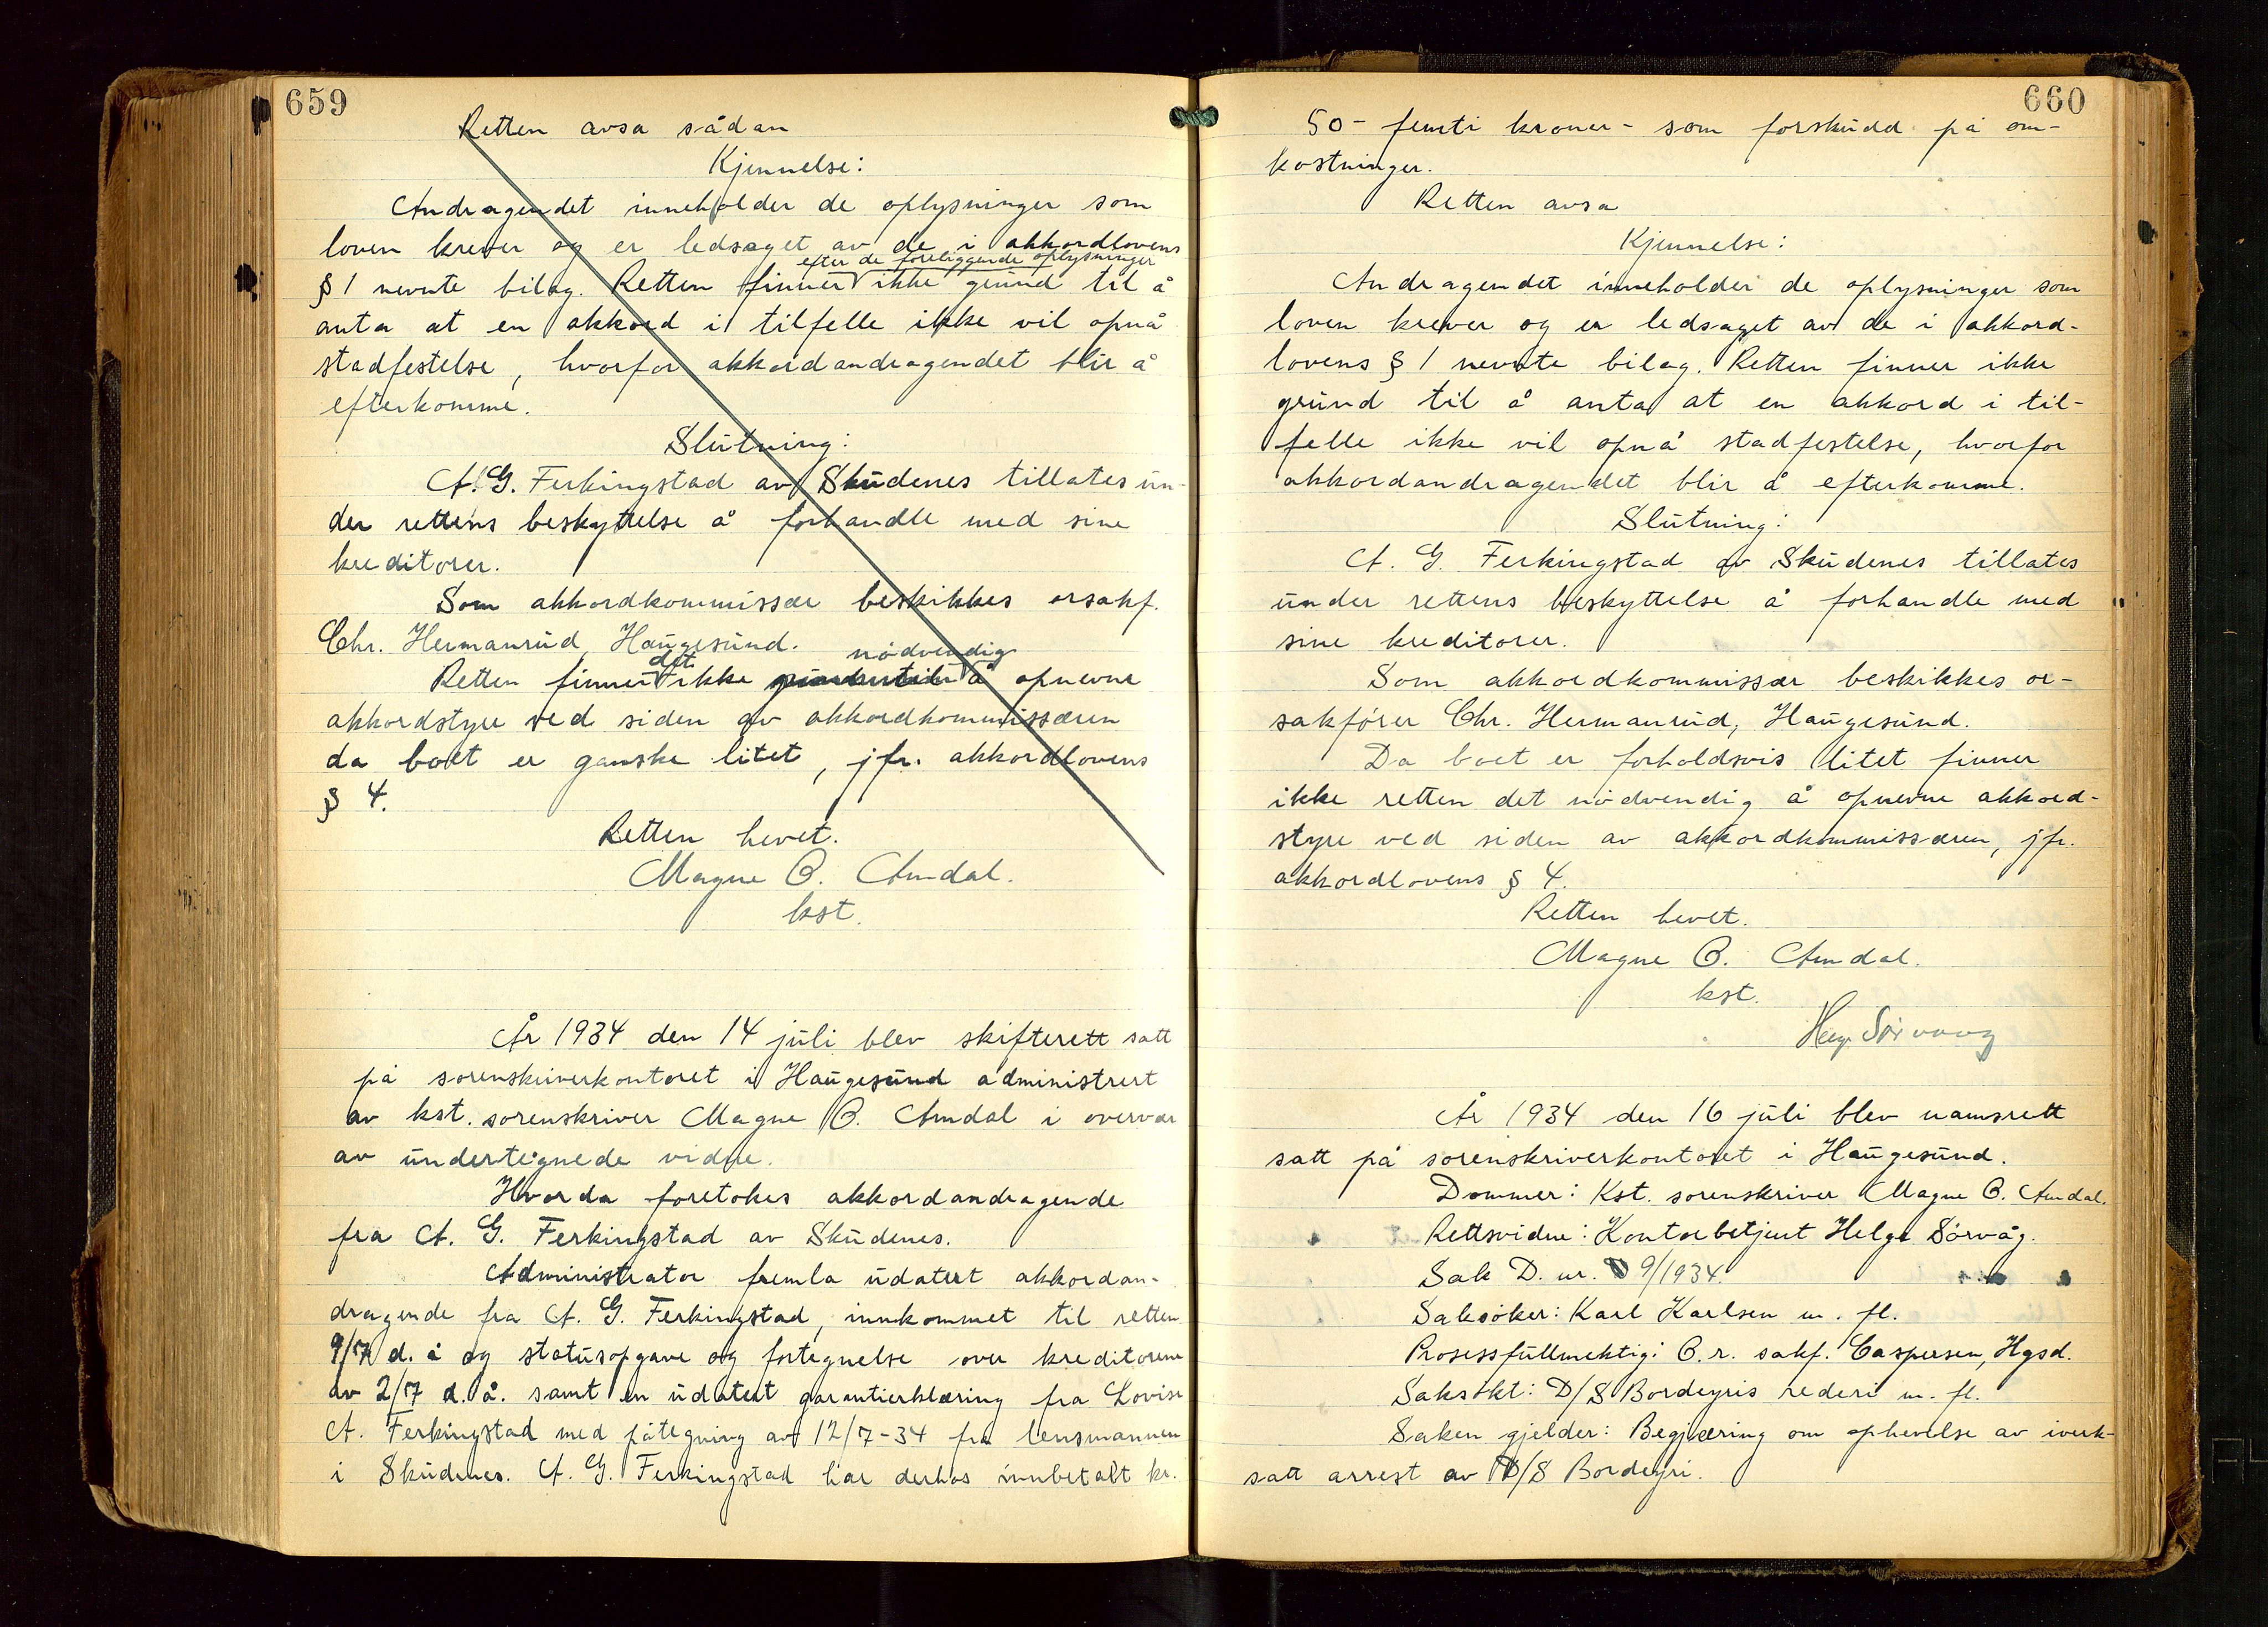 659
Retten avsa sådan
Kjennelse:
Andragendet inneholder de oplysninger som
loven krever og er ledsaget av de i akkordlovens
efter de foreliggende oplysninger
§ 1 nevnte bilag. Retten finner ikke grund til å
anta at en akkord i tilfelle ikke vil opnå
stadfestelse, hvorfor akkordandragendet blir å
efterkomme.
Slutning:
A. G. Ferkingstad av Skudenes tillates un-
der rettens beskyttelse å forhandle med sine
kreditorer.
Som akkordkommissær beskikkes orsakf.
Chr. Hermanrud, Haugesund.
det nødvendig
Retten finner ikke å opnevne
akkordstyre ved siden av akkordkommissæren
da boet er ganske litet, jfr. akkordlovens
§ 4.
Retten hevet.
Magne O. Amdal.
kst.
År 1934 den 14 juli blev skifterett satt
på sorenskriverkontoret i Haugesund administrert
av kst. sorenskriver Magne O. Amdal i overvær
av undertegnede vidne.
Hvorda foretokes akkordandragende
fra A. G. Ferkingstad av Skudenes.
Administrator fremla udatert akkordan-
dragende fra A. G. Ferkingstad, innkommet til retten
9/7 d. å og statusopgave og fortegnelse over kreditorene
av 2/7 d. å. samt en udatert garantierklæring fra Lovise
A. Ferkingstad med påtegning av 12/7-34 fra lensmannen
i Skudenes. A. G. Ferkingstad har derhos innbetalt kr.
660
50 - femti kroner - som forskudd på om-
kostninger.
Retten avsa
Kjennelse:
Andragendet inneholder de oplysninger som
loven krever og er ledsaget av de i akkord-
lovens § 1 nevnte bilag. Retten finner ikke
grund til å anta at en akkord i til-
felle ikke vil opnå stadfestelse, hvorfor
akkordandragendet blir å efterkomme.
Slutning:
A. G. Ferkingstad av Skudenes tillates
under rettens beskyttelse å forhandle med
sine kreditorer.
Som akkordkommissær beskikkes or-
sakfører Chr. Hermanrud, Haugesund.
Da boet er forholdsvis litet finner
ikke retten det nødvendig å opnevne akkord-
styre ved siden av akkordkommissæren, jfr.
akkordlovens § 4.
Retten hevet.
Magne O. Amdal.
kst.
Helge Sørvaag
År 1934 den 16 juli blev namsrett
satt på sorenskriverkontoret i Haugesund.
Dommer: Kst. sorenskriver Magne O. Amdal.
Rettsvidne: Kontorbetjent Helge Sørvåg.
Sak D. nr. 9/1934.
Saksøker: Karl Karlsen m. fl.
Prosessfullmektig: O.r. sakf. Caspersen, Hgsd.
Saksøkt: D/S Bordeyris rederi m. fl.
Saken gjelder: Begjæring om ophevelse av iverk-
satt arrest av D/S Bordeyri.